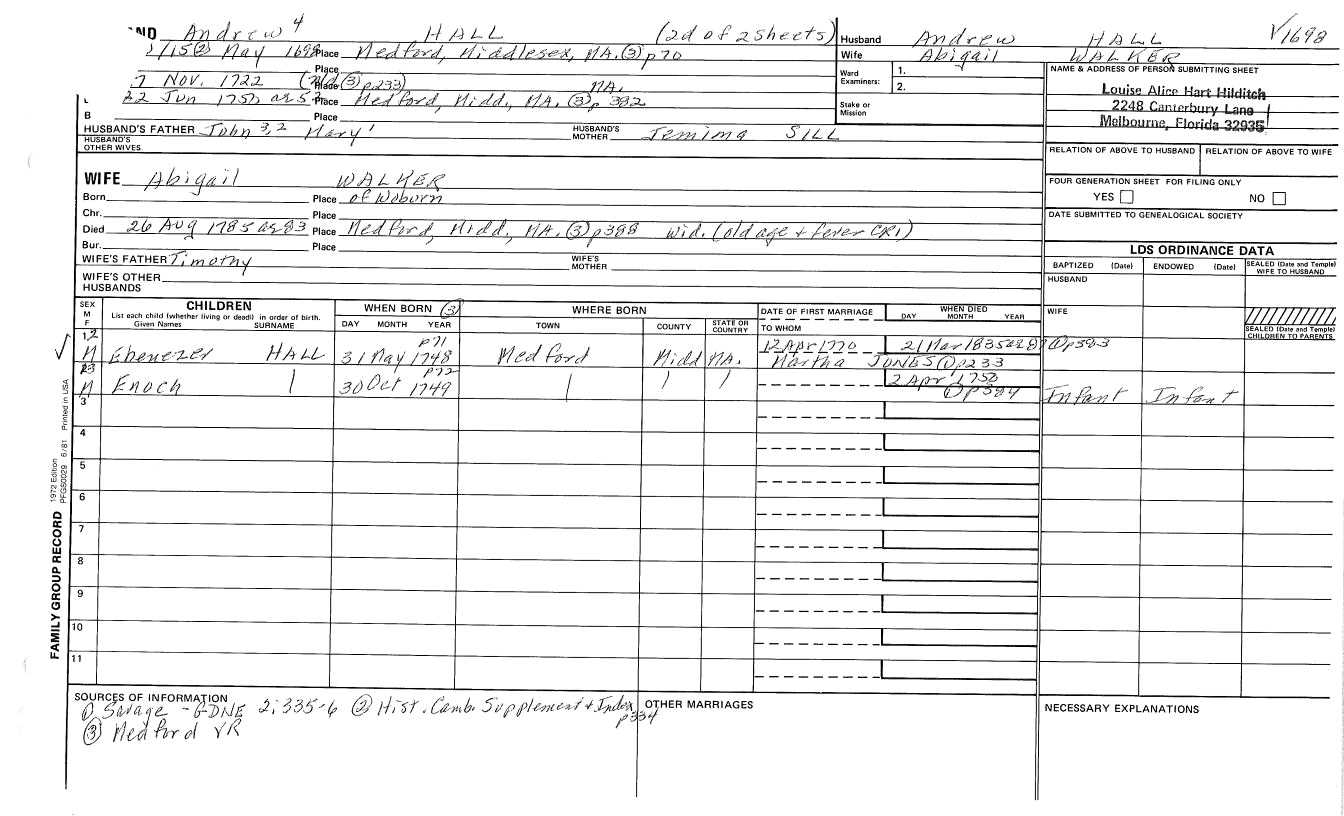 ND Andrew 4 HALL (2d of 2 sheets)
/15 (2) May 1698 Place Medford, Middlesex, MA. (3) p70
Place
7 Nov. 1722 (3) p233) Place MA.
22 Jun 1750 Place Medford, Midd., MA. (3) p 382
B
HUSBAND'S FATHER John 3,2 Mary 1 HUSBAND'S MOTHER Jemima SILL
HUSBAND'S OTHER WIVES
WIFE Abigail WALKER
Born Place of Woburn
Chr. Place
Died 26 Aug 1785 ae 83 Place Medford, Midd, MA. (3) p388 Wid. (old age + fever CR1)
Bur. Place
WIFE'S FATHER Timothy WIFE'S MOTHER
WIFE'S OTHER HUSBANDS
Husband Andrew HALL √1698
Wife Abigail WALKER
Ward Examiners: 1.
2.
Stake or Mission
NAME & ADDRESS OF PERSON SUBMITTING SHEET
Louise Alice Hart Hilditch
2248 Canterbury Lane
Melbourne, Florida 32935
RELATION OF ABOVE TO HUSBAND RELATION OF ABOVE TO WIFE
FOUR GENERATION SHEET FOR FILING ONLY
YES NO
DATE SUBMITTED TO GENEALOGICAL SOCIETY
LDS ORDINANCE DATA
BAPTIZED (Date) ENDOWED (Date) SEALED (Date and Temple) WIFE TO HUSBAND
HUSBAND
WIFE
SEALED (Date and Temple) CHILDREN TO PARENTS
SEX M F CHILDREN WHEN BORN (3) WHERE BORN DATE OF FIRST MARRIAGE WHEN DIED
List each child (whether living or dead) in order of birth.
Given Names SURNAME DAY MONTH YEAR TOWN COUNTY STATE OR COUNTRY TO WHOM DAY MONTH YEAR
12 p71 12 Apr 1770 21 Mar 1835 ae 87 (1) p383
√ M Ebenezer HALL 31 May 1748 Medford Midd MA. Martha JONES (1) p233
23 p72 2 Apr 1750
M Enoch 30 Oct 1749 (1) p384 Infant Infant
3
4
5
6
7
8
9
10
11
FAMILY GROUP RECORD 1972 Edition PFGS0029 6/81 Printed in USA
SOURCES OF INFORMATION
(1) Savage - GDNE 2:335-6 (2) Hist. Camb. Supplement + Index p334
(3) Medford VR
OTHER MARRIAGES
NECESSARY EXPLANATIONS